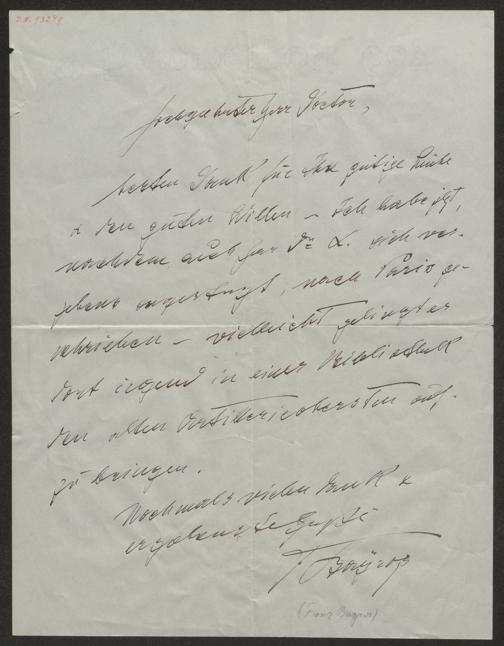 I.N. 13249
Hochgeehrter Herr Doctor,
besten Dank für Ihre gütige Mühe
& den guten Willen – Ich habe jetzt,
nachdem auch Herr Dr L. sich ver-
gebens angestrengt, nach Paris ge-
schrieben – vielleicht gelingt es
dort irgend in einer Bibliothek
den alten Artillerieobersten auf-
zu bringen.
Nochmals vielen Dank &
ergebenste Grüße
F Bayros
(Franz Bayros)